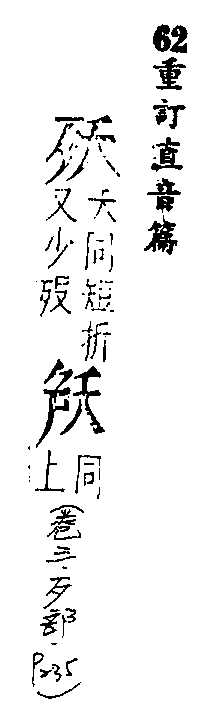 62重訂直音篇
殀
夭同短折
又少歿
同
上
(卷三·歹部·P235)